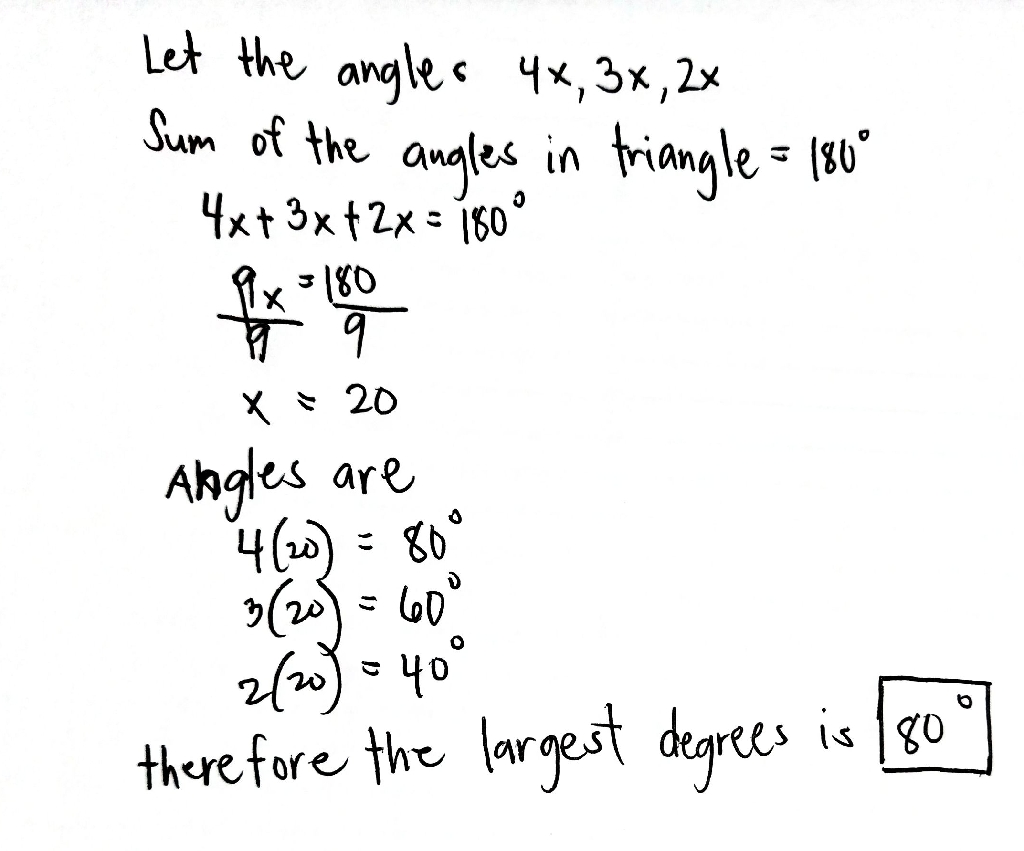 Let the angles 4x, 3x, 2x
Sum of the angles in triangle = 180°
4x + 3x + 2x = 180°
9x = 180
9 9
x = 20
Angles are
4(20) = 80°
3(20) = 60°
2(20) = 40°
therefore the largest degrees is 80°